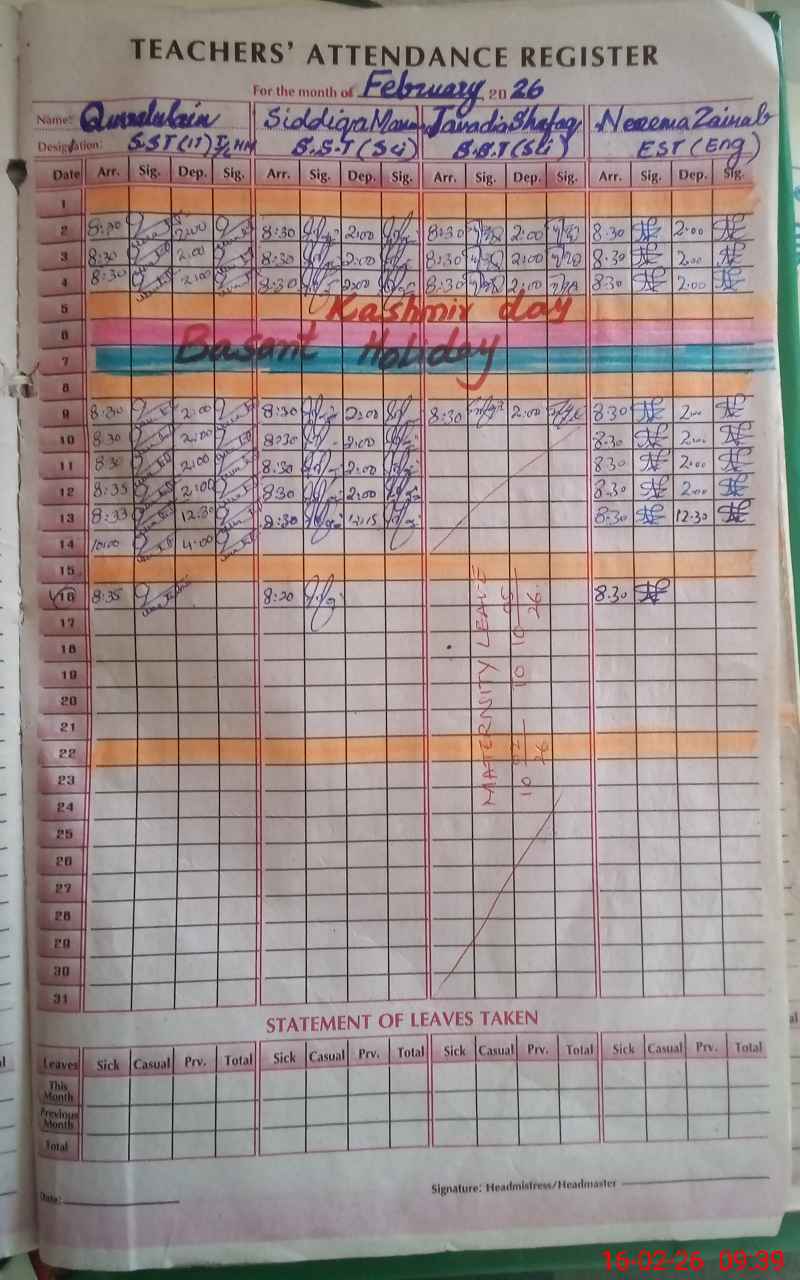 TEACHERS' ATTENDANCE REGISTER
For the month of February 2026
Name: Siddiqa Neeema Zainab
Designation: S.ST (IT) I/C HM S.S.T (Sci) EST (Eng)
Date Arr. Sig. Dep. Sig. Arr. Sig. Dep. Sig. Arr. Sig. Dep. Sig. Arr. Sig. Dep. Sig.
1
2 8:30 2:00 8:30 2:00 8:30 2:00 8.30 2:00
3 8:30 2:00 8:30 2:00 8:30 2:00 8.30 2:00
4 8:30 2:00 8:30 2:00 8:30 2:00 8:30 2:00
5 Kashmir day
6
7 Basant Holiday
8
9 8:30 2:00 8:30 2:00 8:30 2:00 8:30 2:00
10 8:30 2:00 8:30 2:00 8:30 2:00
11 8:30 2:00 8:30 2:00 8:30 2:00
12 8:35 2:00 8:30 2:00 8:30 2:00
13 8:33 12:30 8:30 12:15 8:30 12:30
14 10:00 4:00
15
16 8:35 8:20 8:30
17
18
19
20
21
22
23
24
25
26
27
28
29
30
31
MATERNITY LEAVE
10 02 26 10 10 05 26
STATEMENT OF LEAVES TAKEN
Leaves Sick Casual Prv. Total Sick Casual Prv. Total Sick Casual Prv. Total Sick Casual Prv. Total
This Month
Previous Month
Total
Date:
Signature: Headmistress/Headmaster
16-02-26 09:39